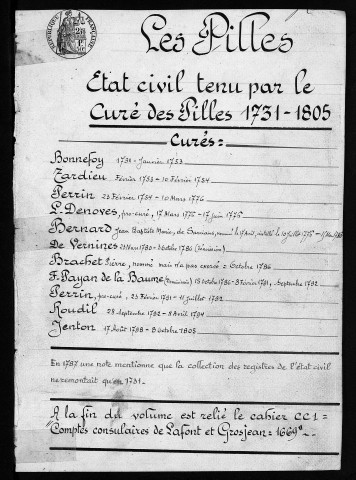 Les Pilles
Etat civil tenu par le
Curé des Pilles 1731-1805
Curés=
Bonnefoy 1731 - Janvier 1753
Tardieu Février 1753 - 10 Février 1754
Perrin 23 Février 1754 - 10 Mars 1775
L. Denoves, pro-curé, 17 Mars 1775 - 17 Juin 1775
Bernard Jean Baptiste Marie, de
De Vernines 23 Mars 1780 - 3 Octobre 1786
Brachet Pierre, nommé mais n'a pas exercé 2 Octobre 1786
F. Payan de la Baume 15 Octobre 1786 - 9 Février 1791, Septembre 1792
Perrin, pro-curé, 23 Février 1791 - 11 Juillet 1792
Roudil 28 Septembre 1792 - 8 Avril 1794
Jenton 17 Août 1798 - 8 Octobre 1805
En 1787 une note mentionne que la collection des registres de l'état civil
ne remontait qu'en 1731.
A la fin du volume est relié le cahier CC1=
Comptes consulaires de Lafont et Grosjean = 1669